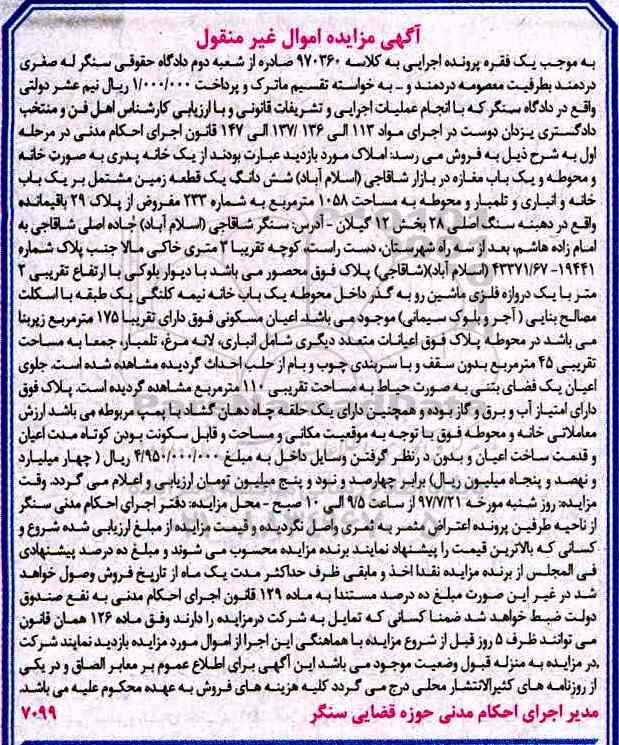 آگهی مزایده اموال غیر منقول
به موجب یک فقره پرونده اجرایی به کلاسه ۹۷۰۳۶۰ صادره از شعبه دوم دادگاه حقوقی سنگر له صغری
دردمند بطرفیت معصومه دردمند و ـ به خواسته تقسیم ماترک و پرداخت ۱/۰۰۰/۰۰۰ ریال نیم عشر دولتی
واقع در دادگاه سنگر که با انجام عملیات اجرایی و تشریفات قانونی و با ارزیابی کارشناس اهل فن و منتخب
دادگستری یزدان دوست در اجرای مواد ۱۱۳ الی ۱۳۶ /۱۳۷ الی ۱۴۷ قانون اجرای احکام مدنی در مرحله
اول به شرح ذیل به فروش می رسد: املاک مورد بازدید عبارت بودند از یک خانه پدری به صورت خانه
و محوطه و یک باب مغازه در بازار شاقاجی (اسلام آباد) شش دانگ یک قطعه زمین مشتمل بر یک باب
خانه و انباری و تلمبار و محوطه به مساحت ۱۰۵۸ مترمربع به شماره ۲۳۳ مفروض از پلاک ۲۹ باقیمانده
واقع در دهینه سنگ اصلی ۲۸ بخش ۱۲ گیلان - آدرس: سنگر شاقاجی (اسلام آباد) جاده اصلی شاقاجی به
امام زاده هاشم، بعد از سه راه شهرستان، دست راست، کوچه تقریبا ۳ متری خاکی مالا جنب پلاک شماره
۱۹۴۴۱- ۴۳۳۷۱/۶۷ (اسلام آباد)(شاقاجی) پلاک فوق محصور می باشد با دیوار بلوکی با ارتفاع تقریبی ۲
متر با یک دروازه فلزی ماشین رو به گذر داخل محوطه یک باب خانه نیمه کلنگی یک طبقه با اسکلت
مصالح بنایی ( آجر و بلوک سیمانی) موجود می باشد. اعیان مسکونی فوق دارای تقریبا ۱۷۵ مترمربع زیربنا
می باشد در محوطه پلاک فوق اعیانات متعدد دیگری شامل انباری، لانه مرغ، تلمبار، جمعا به مساحت
تقریبی ۴۵ مترمربع بدون سقف و با سربندی چوب و بام از حلب احداث گردیده مشاهده شده است. جلوی
اعیان یک فضای بتنی به صورت حیاط به مساحت تقریبی ۱۱۰ مترمربع مشاهده گردیده است. پلاک فوق
دارای امتیاز آب و برق و گاز بوده و همچنین دارای یک حلقه چاه دهان گشاد با پمپ مربوطه می باشد ارزش
معاملاتی خانه و محوطه فوق با توجه به موقعیت مکانی و مساحت و قابل سکونت بودن کوتاه مدت اعیان
و قدمت ساخت اعیان و بدون د رنظر گرفتن وسایل داخل به مبلغ ۴/۹۵۰/۰۰۰/۰۰۰ ریال ( چهار میلیارد
و نهصد و پنجاه میلیون ریال) برابر چهارصد و نود و پنج میلیون تومان ارزیابی و اعلام می گردد. وقت
مزایده: روز شنبه مورخه ۹۷/۷/۲۱ از ساعت ۹/۵ الی ۱۰ صبح - محل مزایده: دفتر اجرای احکام مدنی سنگر
از ناحیه طرفین پرونده اعتراض مثمر به ثمری واصل نگردیده و قیمت مزایده از مبلغ ارزیابی شده شروع و
کسانی که بالاترین قیمت را پیشنهاد نمایند برنده مزایده محسوب می شوند و مبلغ ده درصد پیشنهادی
فی المجلس از برنده مزایده نقدا اخذ و مابقی ظرف حداکثر مدت یک ماه از تاریخ فروش وصول خواهد
شد در غیر این صورت مبلغ ده درصد مستندا به ماده ۱۲۹ قانون اجرای احکام مدنی به نفع صندوق
دولت ضبط خواهد شد ضمنا کسانی که تمایل به شرکت درمزایده را دارند وفق ماده ۱۲۶ همان قانون
می توانند ظرف ۵ روز قبل از شروع مزایده با هماهنگی این اجرا از اموال مورد مزایده بازدید نمایند شرکت
در مزایده به منزله قبول وضعیت موجود می باشد این آگهی برای اطلاع عموم بر معابر الصاق و در یکی
از روزنامه های کثیرالانتشار محلی درج می گردد کلیه هزینه های فروش به عهده محکوم علیه می باشد.
مدیر اجرای احکام مدنی حوزه قضایی سنگر ۷۰۹۹